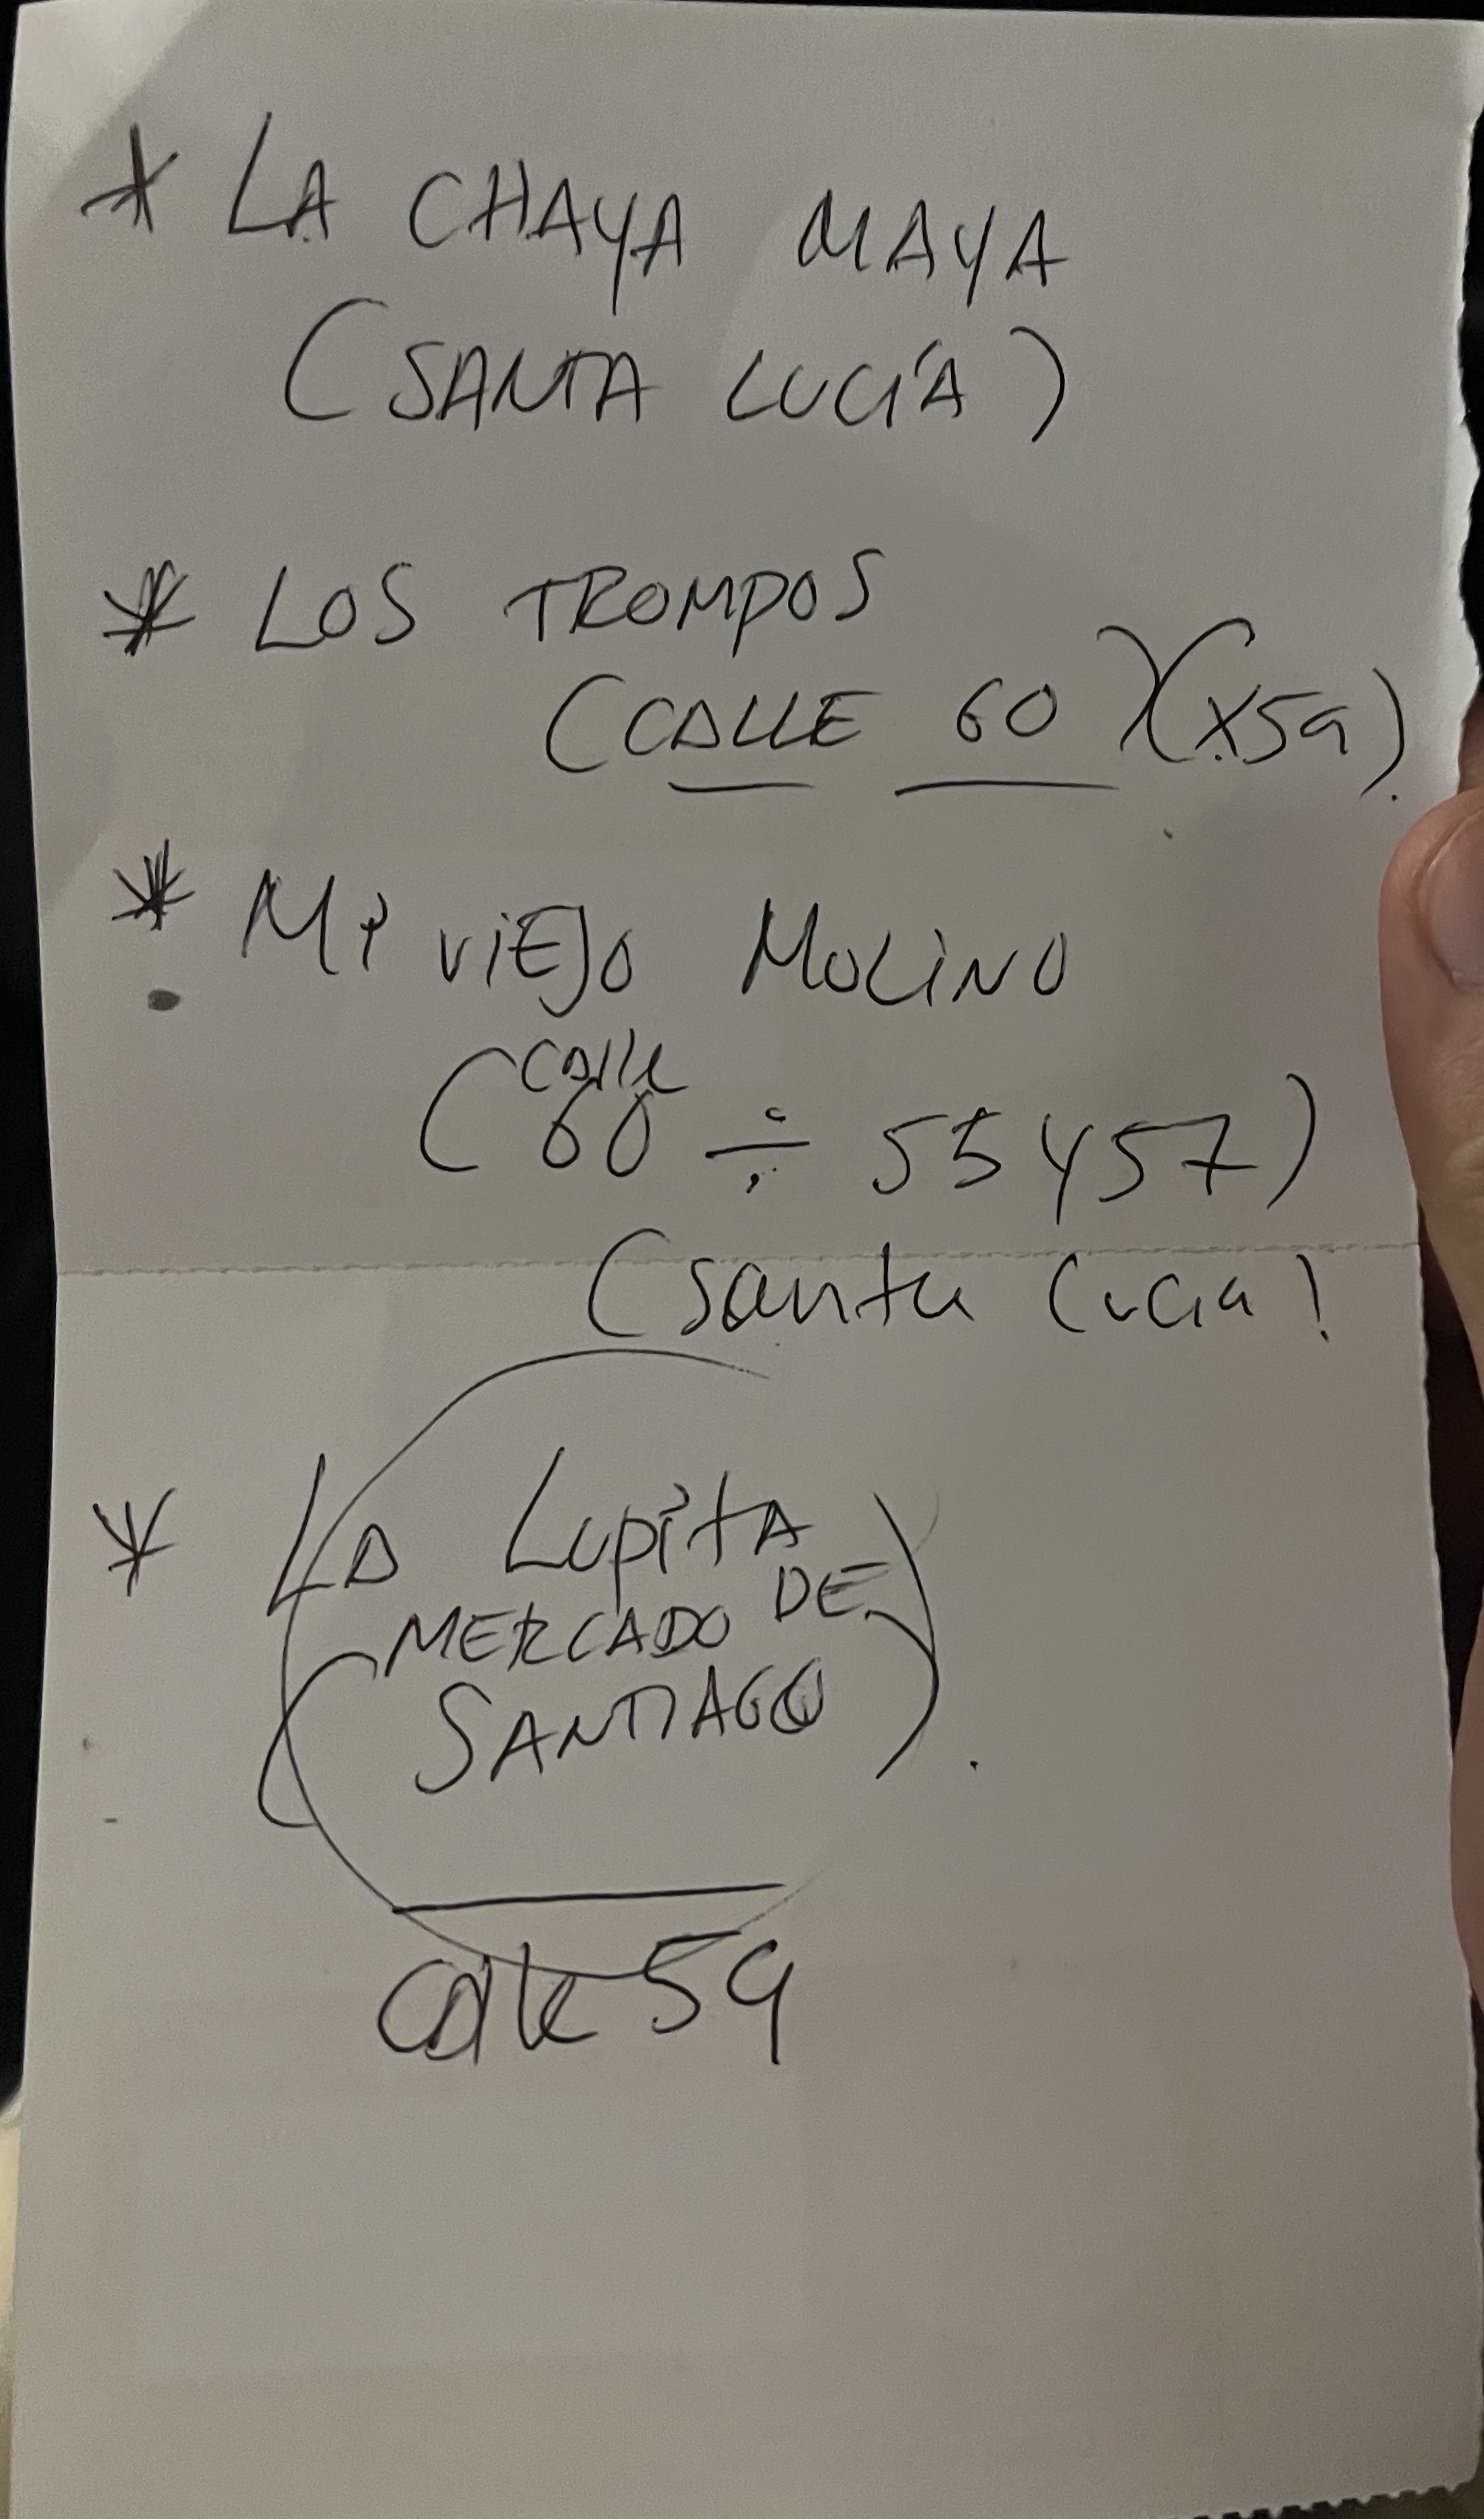 * LA CHAYA MAYA
(SANTA LUCÍA)
* LOS TROMPOS
(CALLE 60)(x59)
* Mi viEJO MOLiNO
(calle 60 ÷ 55 y 57)
(santa Lucia)
* LA LupitA
(MERCADO DE
SANTIAGO)
calle 59